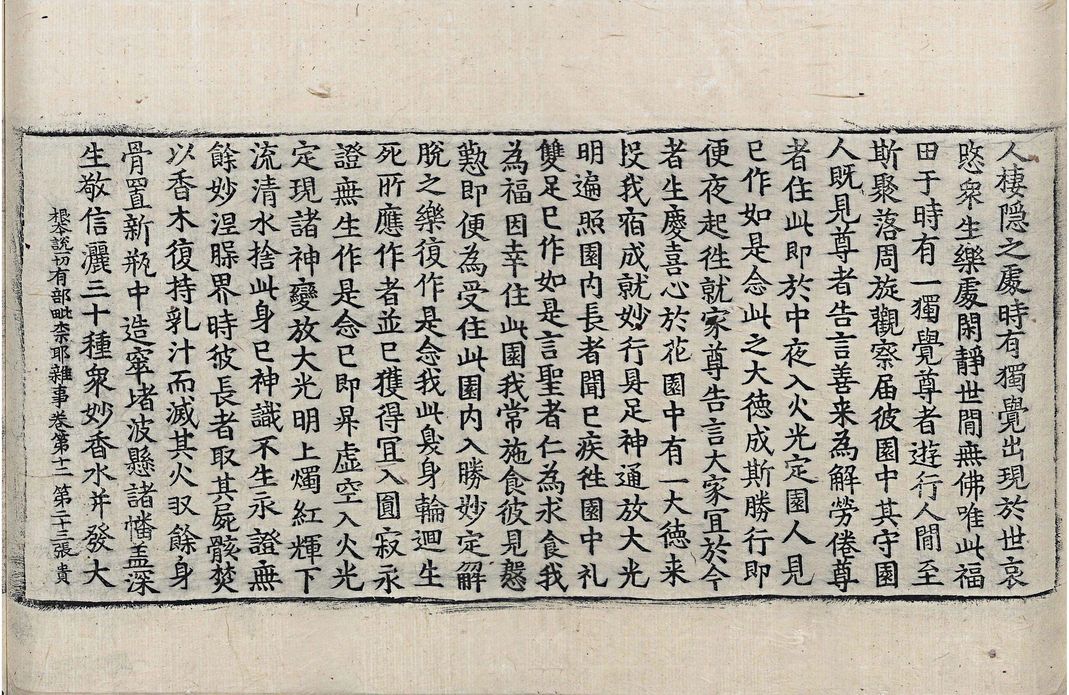 人棲隠之處時有獨覺出現於世哀
愍衆生樂處閑靜世閒無佛唯此福
田于時有一獨覺尊者遊行人閒至
斯聚落周旋觀察届彼園中其守園
人既見尊者告言善来為解勞倦尊
者住此即於中夜入火光定園人見
已作如是念此之大德成斯勝行即
便夜起徃就家尊告言大家冝於今
者生慶喜心於花園中有一大德来
投我宿成就妙行具足神通放大光
明遍照園内長者聞已疾徃園中礼
雙足已作如是言聖者仁為求食我
為福因幸住此園我常施食彼見慇
懃即便為受住此園内入勝妙定解
脫之樂復作是念我此身輪迴生
死所應作者並已獲得冝入圓寂永
證無生作是念已即昇虛空入火光
定現諸神變放大光明上燭紅輝下
流清水捨此身已神識不生永證無
餘妙涅槃界時彼長者取其屍骸焚
以香木復持乳汁而滅其火収餘身
骨置新瓶中造窣堵波懸諸幡盖深
生敬信灑三十種衆妙香水并發大
根本說一切有部毗柰耶雜事卷第十二 第二十三張 貴